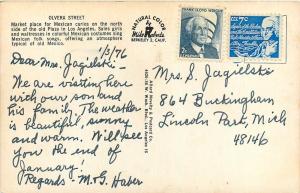 OLVERA STREET
Market place for Mexico carries on the north
side of the old Plaza in Los Angeles. Sales girls
and waitresses in colorful Mexican costumes sing
Mexican folk songs, offering an atmosphere
typical of old Mexico.
NATURAL COLOR
Mike Roberts
BERKELEY 2, CALIF.
FRANK LLOYD WRIGHT
2¢
7c
1/3/76
Dear Mrs. Jagielski
We are visiting here
with our son and
his family. The weather
is beautiful, sunny
and warm. Will see
you the end of
January!
Regards - M. & G. Haber
Mrs S. Jagielski
864 Buckingham
Lincoln Park, Mich
48146